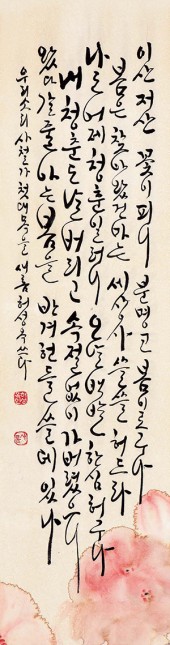 이산 저산 꽃이 피니 분명코 봄이로구나
봄은 찾아왔건마는 세상사 쓸쓸허드라
나도 어제 청춘일러니 오날 백발 한심허구나
내 청춘도 날 버리고 속절없이 가버렸으니
왔다 갈 줄 아는 봄을 반겨헌들 쓸데있나
우리소리 사철가 첫대목을 새롬 허성욱 쓰다